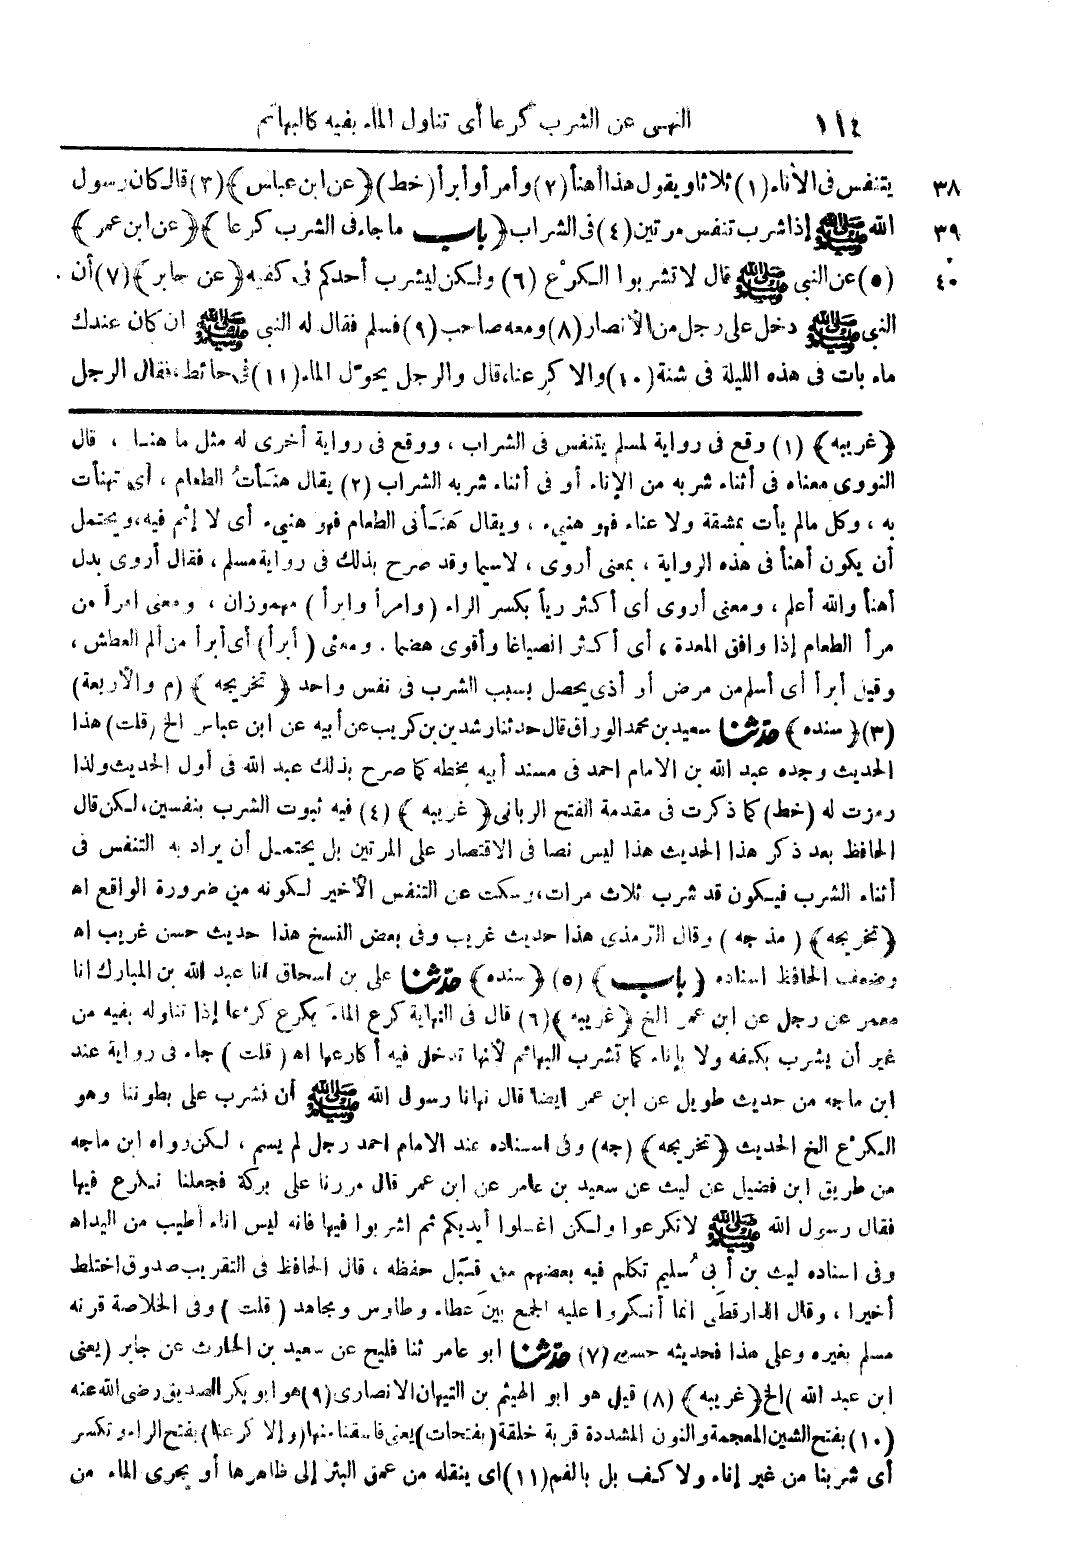 ١١٤ النهى عن الشرب كرعا أى تناول الماء بفيه كالبهائم
٣٨ يتنفس فى الأناء (١) ثلاثا ويقول هذا أهنأ (٢) وأمرأ وأبرأ (خط) ﴿عن ابن عباس﴾ (٣) قال كان رسول
٣٩ الله ﷺ إذا شرب تنفس مرتين (٤) فى الشراب ﴿باب ما جاء فى الشرب كرعا﴾ ﴿عن ابن عمر﴾
٤٠ (٥) عن النبى ﷺ قال لا تشربوا الكرْع (٦) ولكن ليشرب أحدكم فى كفيه ﴿عن جابر﴾ (٧) أن
النبى ﷺ دخل على رجل من الأنصار (٨) ومعه صاحب (٩) فسلم فقال له النبى ﷺ ان كان عندك
ماء بات فى هذه الليلة فى شنة (١٠) والا كرعنا، قال والرجل يحوّل الماء (١١) فى حائط، فقال الرجل
﴿غريبه﴾ (١) وقع فى رواية لمسلم يتنفس فى الشراب ، ووقع فى رواية أخرى له مثل ما هنا ، قال
النووى معناه فى أثناء شربه من الإناء أو فى أثناء شربه الشراب (٢) يقال هنَأتُ الطعام ، أى تهنأت
به ، وكل مالم يأت بمشقة ولا عناء فهو هنيء ، ويقال هَنَأنى الطعام فهو هنيء أى لا إثم فيه، ويحتمل
أن يكون أهنأ فى هذه الرواية ، بمعنى أروى ، لاسيما وقد صرح بذلك فى رواية مسلم ، فقال أروى بدل
أهنأ والله أعلم ، ومعنى أروى أى أكثر ريا بكسر الراء (وامرأ وابرأ) مهموزان ، ومعنى امرأ من
مرأ الطعام إذا وافق المعدة ، أى أكثر انصياغا وأقوى هضما . ومعنى (أبرأ) أى أبرأ من ألم العطش ،
وقيل أبرأ أى أسلم من مرض أو أذى يحصل بسبب الشرب فى نفس واحد ﴿تخريجه﴾ (م والأربعة)
(٣) ﴿سنده﴾ حدّثنا سعيد بن محمد الوراق قال حدثنا رشدين بن كريب عن أبيه عن ابن عباس الخ (قلت) هذا
الحديث وجده عبد الله بن الامام احمد فى مسند أبيه بخطه كما صرح بذلك عبد الله فى أول الحديث ولذا
رمزت له (خط) كما ذكرت فى مقدمة الفتح الربانى ﴿غريبه﴾ (٤) فيه ثبوت الشرب بنفسين، لكن قال
الحافظ بعد ذكر هذا الحديث هذا ليس نصا فى الاقتصار على المرتين بل يحتمل أن يراد به التنفس فى
أثناء الشرب فيكون قد شرب ثلاث مرات، وسكت عن التنفس الأخير لكونه من ضرورة الواقع اه
﴿تخريجه﴾ (مذ جه) وقال الترمذى هذا حديث غريب وفى بعض النسخ هذا حديث حسن غريب اه
وضعف الحافظ اسناده ﴿باب﴾ (٥) ﴿سنده﴾ حدّثنا على بن اسحاق انا عبد الله بن المبارك انا
معمر عن رجل عن ابن عمر الخ ﴿غريبه﴾ (٦) قال فى النهاية كرع الماء يكرع كرعا إذا تناوله بفيه من
غير أن يشرب بكفه ولا بإناء كما تشرب البهائم لأنها تدخل فيه أكارعها اه (قلت) جاء فى رواية عند
ابن ماجه من حديث طويل عن ابن عمر ايضا قال نهانا رسول الله ﷺ أن نشرب على بطوننا وهو
الكرْع الخ الحديث ﴿تخريجه﴾ (جه) وفى اسناده عند الامام احمد رجل لم يسم ، لكن رواه ابن ماجه
من طريق ابن فضيل عن ليث عن سعيد بن عامر عن ابن عمر قال مررنا على بركة فجعلنا نكرع فيها
فقال رسول الله ﷺ لاتكرعوا ولكن اغسلوا أيديكم ثم اشربوا فيها فانه ليس اناء أطيب من اليداه
وفى اسناده ليث بن أبى سُليم تكلم فيه بعضهم من قِبَل حفظه ، قال الحافظ فى التقريب صدوق اختلط
أخيرا ، وقال الدارقطنى انما أنكروا عليه الجمع بين عطاء وطاوس ومجاهد (قلت) وفى الخلاصة قرنه
مسلم بغيره وعلى هذا فحديثه حسن (٧) حدّثنا ابو عامر ثنا فليح عن سعيد بن الحارث عن جابر (يعنى
ابن عبد الله) الخ ﴿غريبه﴾ (٨) قيل هو ابو الهيثم بن التيهان الانصارى (٩) هو ابو بكر الصديق رضى الله عنه
(١٠) بفتح الشين المعجمة والنون المشددة قربة خلقة (بفتحات) يعنى فاسقنا منها (وإلا كرعنا) بفتح الراء وتكسر
أى شربنا من غير إناء ولا كف بل بالفم (١١) اى ينقله من عمق البئر إلى ظاهرها أو يجرى الماء من